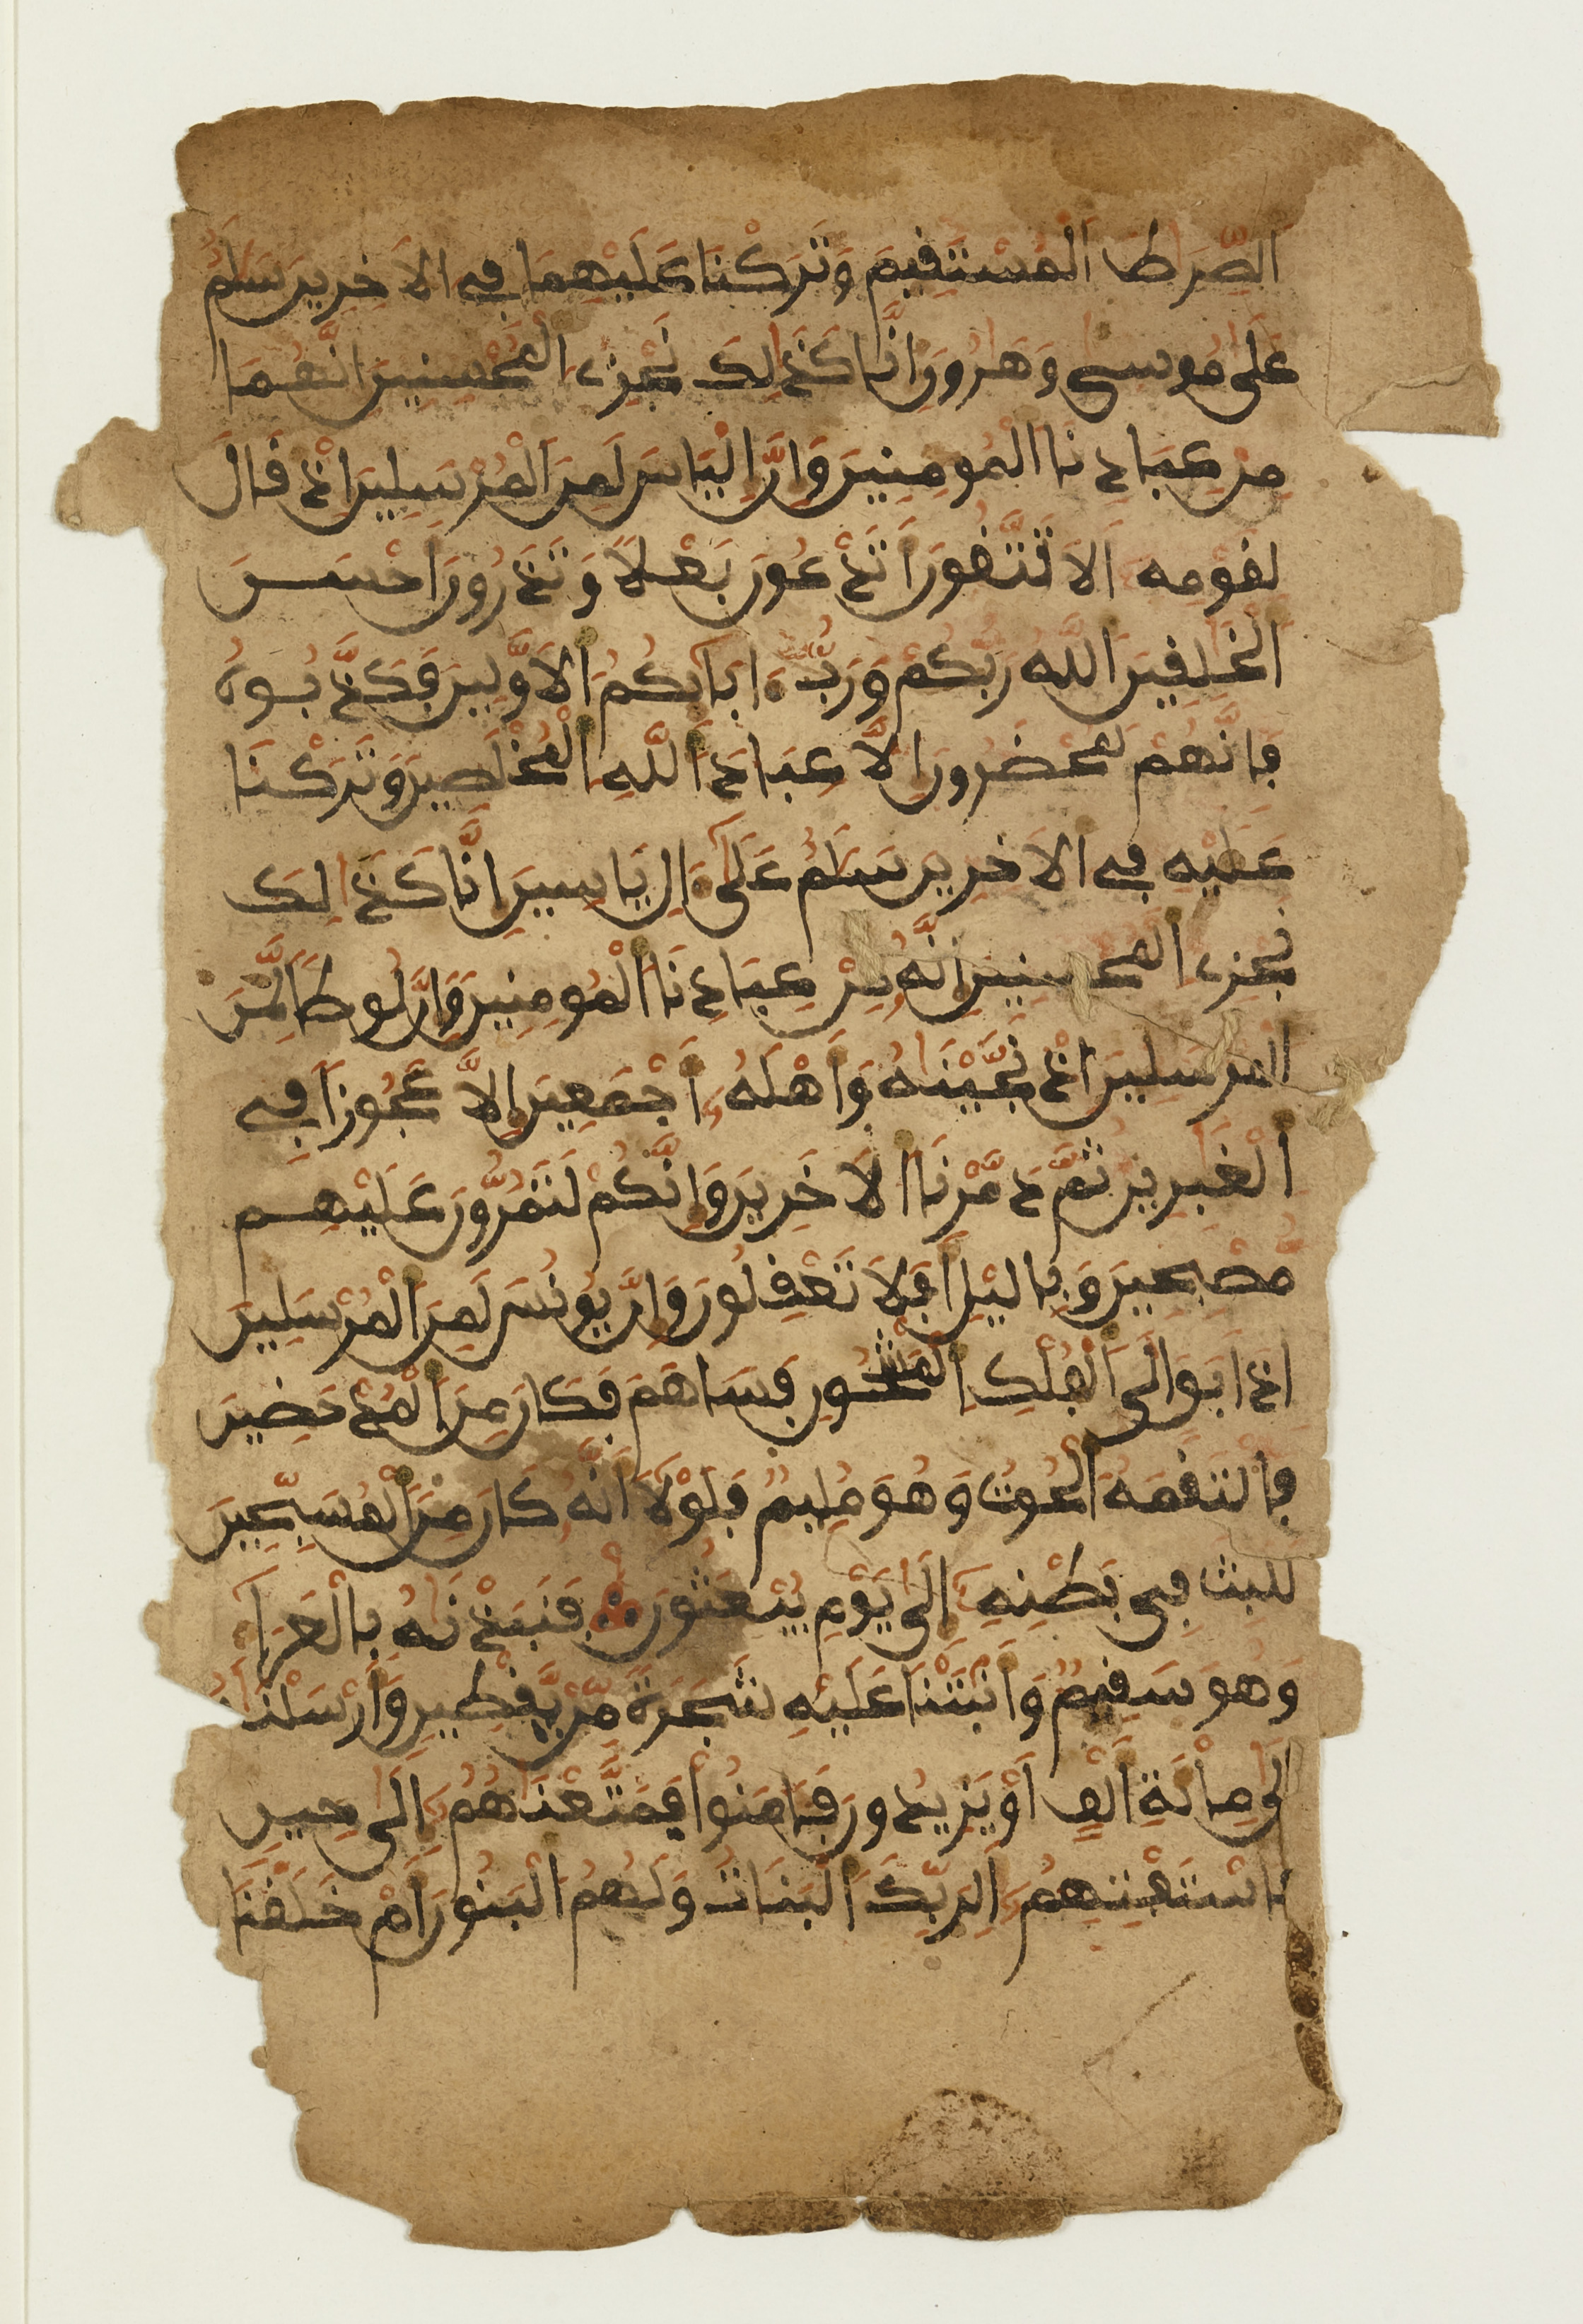 الصِّرَٰطَ اَلْمُسْتَقِيمَ وَتَرَكْنَا عَلَيْهِمَا فِے اِلَاخِرِينَ سَلَٰمٌ
عَلَىٰ مُوسىٰ وَهَٰرُونَ إِنَّا كَذَٰلِكَ نَجْزِے اِلْمُحْسِنِينَ إِنَّهُمَا
مِنْ عِبَادِنَا اَلْمُومِنِينَ وَإِنَّ إِلْيَاسَ لَمِنَ اَلْمُرْسَلِينَ إِذْ قَالَ
لِقَوْمِهِ أَلَا تَتَّقُونَ أَتَدْعُونَ بَعْلًا وَتَذَرُونَ أَحْسَنَ
اَلْخَٰلِقِينَ اَللَّهُ رَبُّكُمْ وَرَبُّ ءَابَآئِكُمُ اُلَاوَّلِينَ فَكَذَّبُوهُ
فَإِنَّهُمْ لَمُحْضَرُونَ إِلَّا عِبَادَ اَللَّهِ اِلْمُخْلَصِينَ وَتَرَكْنَا
عَلَيْهِ فِے اِلَاخِرِينَ سَلَٰمٌ عَلَىٰٓ ءَالِ يَاسِينَ إِنَّا كَذَٰلِكَ
نَجْزِے اِلْمُحْسِنِينَ إِنَّهُ مِنْ عِبَادِنَا اَلْمُومِنِينَ وَإِنَّ لُوطًا لَّمِنَ
اَلْمُرْسَلِينَ إِذْ نَجَّيْنَٰهُ وَأَهْلَهُ أَجْمَعِينَ إِلَّا عَجُوزًا فِے
اِلْغَٰبِرِينَ ثُمَّ دَمَّرْنَا اَلَاخَرِينَ وَإِنَّكُمْ لَتَمُرُّونَ عَلَيْهِم
مُّصْبِحِينَ وَبِاليْلِ أَفَلَا تَعْقِلُونَ وَإِنَّ يُونُسَ لَمِنَ اَلْمُرْسَلِينَ
إِذَ اَبَقَ إِلَى اَلْفُلْكِ اِلْمَشْحُونِ فَسَاهَمَ فَكَانَ مِنَ اَلْمُدْحَضِينَ
فَالْتَقَمَهُ اُلْحُوتُ وَهُوَ مُلِيمٌ فَلَوْلَآ أَنَّهُ كَانَ مِنَ اَلْمُسَبِّحِينَ
لَلَبِثَ فِى بَطْنِهِ إِلَىٰ يَوْمِ يُبْعَثُونَ فَنَبَذْنَٰهُ بِالْعَرَآ
وَهُوَ سَقِيمٌ وَأَنبَتْنَا عَلَيْهِ شَجَرَةً مِّنْ يَّقْطِينٍ وَأَرْسَلْنَٰهُ
إِلَىٰ مِاْئَةِ أَلْفٍ أَوْ يَزِيدُونَ فَـَٔامَنُواْ فَمَتَّعْنَٰهُمُ إِلَىٰ حِينٍ
فَاسْتَفْتِهِمُ أَلِرَبِّكَ اَلْبَنَاتُ وَلَهُمُ اُلْبَنُونَ أَمْ خَلَقْنَا